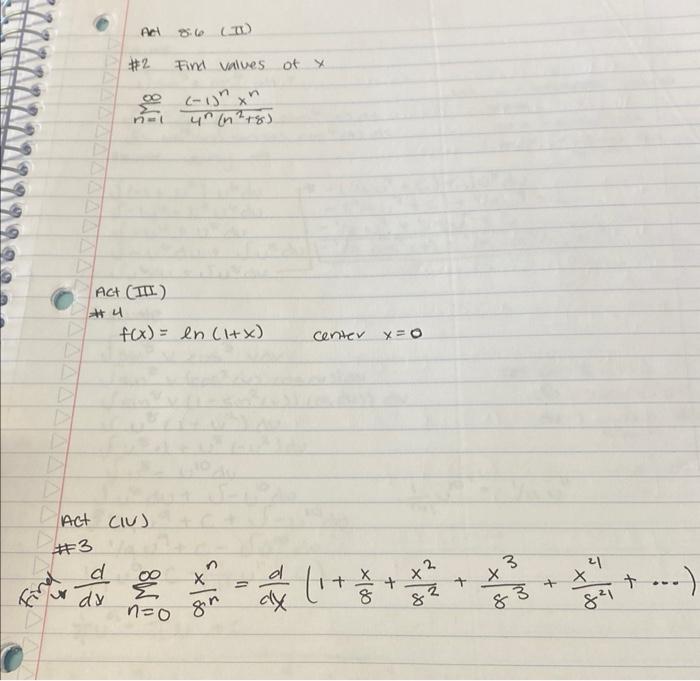 Act 8.6 (II)
#2 Find values of x
∞
Σ (-1)ⁿ xⁿ / 4ⁿ (n²+8)
n=1
Act (III)
#4
f(x) = ln (1+x) center x=0
Act (IV)
#3
Find d/dx ∞Σn=0 xⁿ/8ⁿ = d/dx (1 + x/8 + x²/8² + x³/8³ + x⁴/8⁴ + ...)